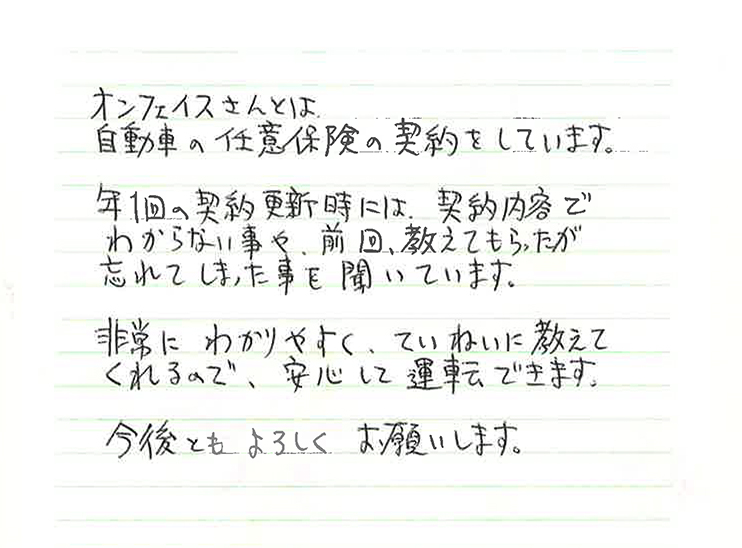 オンフェイスさんとは
自動車の任意保険の契約をしています。
年1回の契約更新時には、契約内容で
わからない事や、前回、教えてもらったが
忘れてしまった事を聞いています。
非常にわかりやすく、ていねいに教えて
くれるので、安心して運転できます。
今後ともよろしくお願いします。